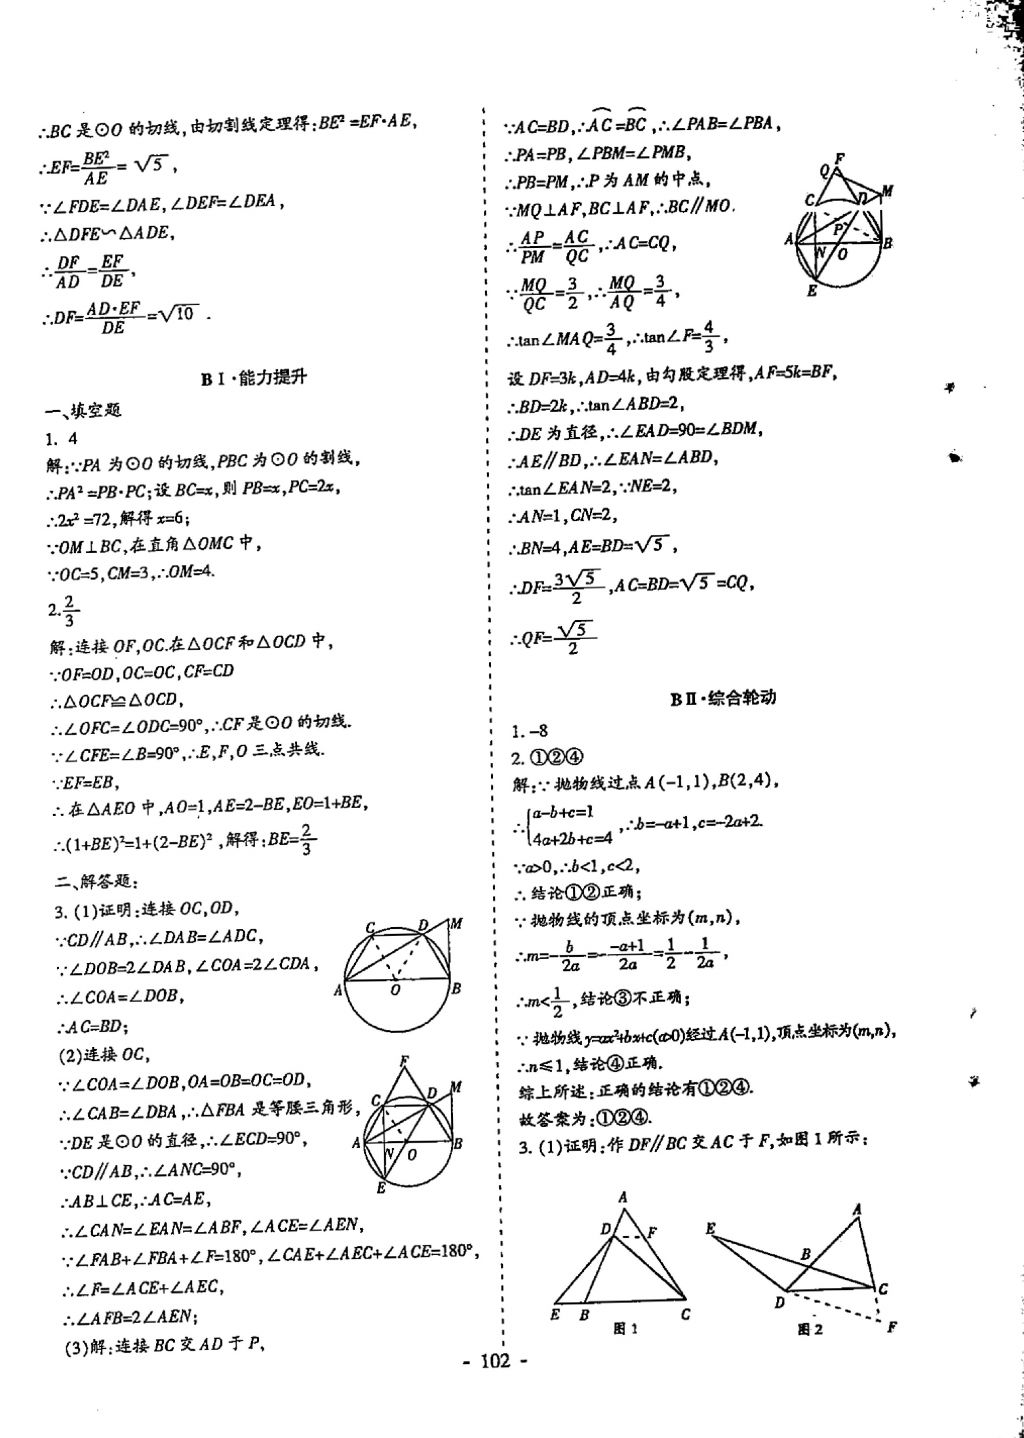 ∴BC 是⊙O 的切线,由切割线定理得:BE²=EF·AE,
∴EF=BE²/AE=√5,
∵∠FDE=∠DAE,∠DEF=∠DEA,
∴△DFE∽△ADE,
∴DF/AD=EF/DE,
∴DF=AD·EF/DE=√10.
BⅠ·能力提升
一、填空题
1. 4
解:∵PA 为⊙O 的切线,PBC 为⊙O 的割线,
∴PA²=PB·PC;设 BC=x,则 PB=x,PC=2x,
∴2x²=72,解得 x=6;
∵OM⊥BC,在直角△OMC 中,
∵OC=5,CM=3,∴OM=4.
2. 2/3
解:连接 OF,OC.在△OCF 和△OCD 中,
∵OF=OD,OC=OC,CF=CD
∴△OCF≌△OCD,
∴∠OFC=∠ODC=90°,∴CF 是⊙O 的切线.
∵∠CFE=∠B=90°,∴E,F,O 三点共线.
∵EF=EB,
∴在△AEO 中,AO=1,AE=2-BE,EO=1+BE,
∴(1+BE)²=1+(2-BE)²,解得:BE=2/3
二、解答题:
3. (1)证明:连接 OC,OD,
∵CD∥AB,∴∠DAB=∠ADC,
∵∠DOB=2∠DAB,∠COA=2∠CDA,
∴∠COA=∠DOB,
∴AC=BD;
(2)连接 OC,
∵∠COA=∠DOB,OA=OB=OC=OD,
∴∠CAB=∠DBA,∴△FBA 是等腰三角形,
∵DE 是⊙O 的直径,∴∠ECD=90°,
∵CD∥AB,∴∠ANC=90°,
∴AB⊥CE,∴AC=AE,
∴∠CAN=∠EAN=∠ABF,∠ACE=∠AEN,
∵∠FAB+∠FBA+∠F=180°,∠CAE+∠AEC+∠ACE=180°,
∴∠F=∠ACE+∠AEC,
∴∠AFB=2∠AEN;
(3)解:连接 BC 交 AD 于 P,
C D M
A O B
F
C D M
A N O B
E
∵AC=BD,∴A͡C=B͡C,∴∠PAB=∠PBA,
∴PA=PB,∠PBM=∠PMB,
∴PB=PM,∴P 为 AM 的中点,
∵MQ⊥AF,BC⊥AF,∴BC∥MO.
∴AP/PM=AC/QC,∴AC=CQ,
∵MQ/QC=3/2,∴MQ/AQ=3/4,
∴tan∠MAQ=3/4,∴tan∠F=4/3,
设 DF=3k,AD=4k,由勾股定理得,AF=5k=BF,
∴BD=2k,∴tan∠ABD=2,
∴DE 为直径,∴∠EAD=90=∠BDM,
∴AE∥BD,∴∠EAN=∠ABD,
∴tan∠EAN=2,∵NE=2,
∴AN=1,CN=2,
∴BN=4,AE=BD=√5,
∴DF=3√5/2,AC=BD=√5=CQ,
∴QF=√5/2
F
Q
M
C D
P
A N O B
E
BⅡ·综合轮动
1. -8
2. ①②④
解:∵抛物线过点 A(-1,1),B(2,4),
∴{a-b+c=1
4a+2b+c=4,∴b=-a+1,c=-2a+2.
∵a>0,∴b<1,c<2,
∴结论①②正确;
∵抛物线的顶点坐标为(m,n),
∴m=-b/2a=-(-a+1)/2a=1/2-1/2a,
∴m<1/2,结论③不正确;
∵抛物线y=ax²+bx+c(a>0)经过A(-1,1),顶点坐标为(m,n),
∴n≤1,结论④正确.
综上所述:正确的结论有①②④.
故答案为:①②④.
3. (1)证明:作 DF∥BC 交 AC 于 F,如图 1 所示:
A
D F
E B C
图 1
A
E
B
D C
F
图 2
- 102 -